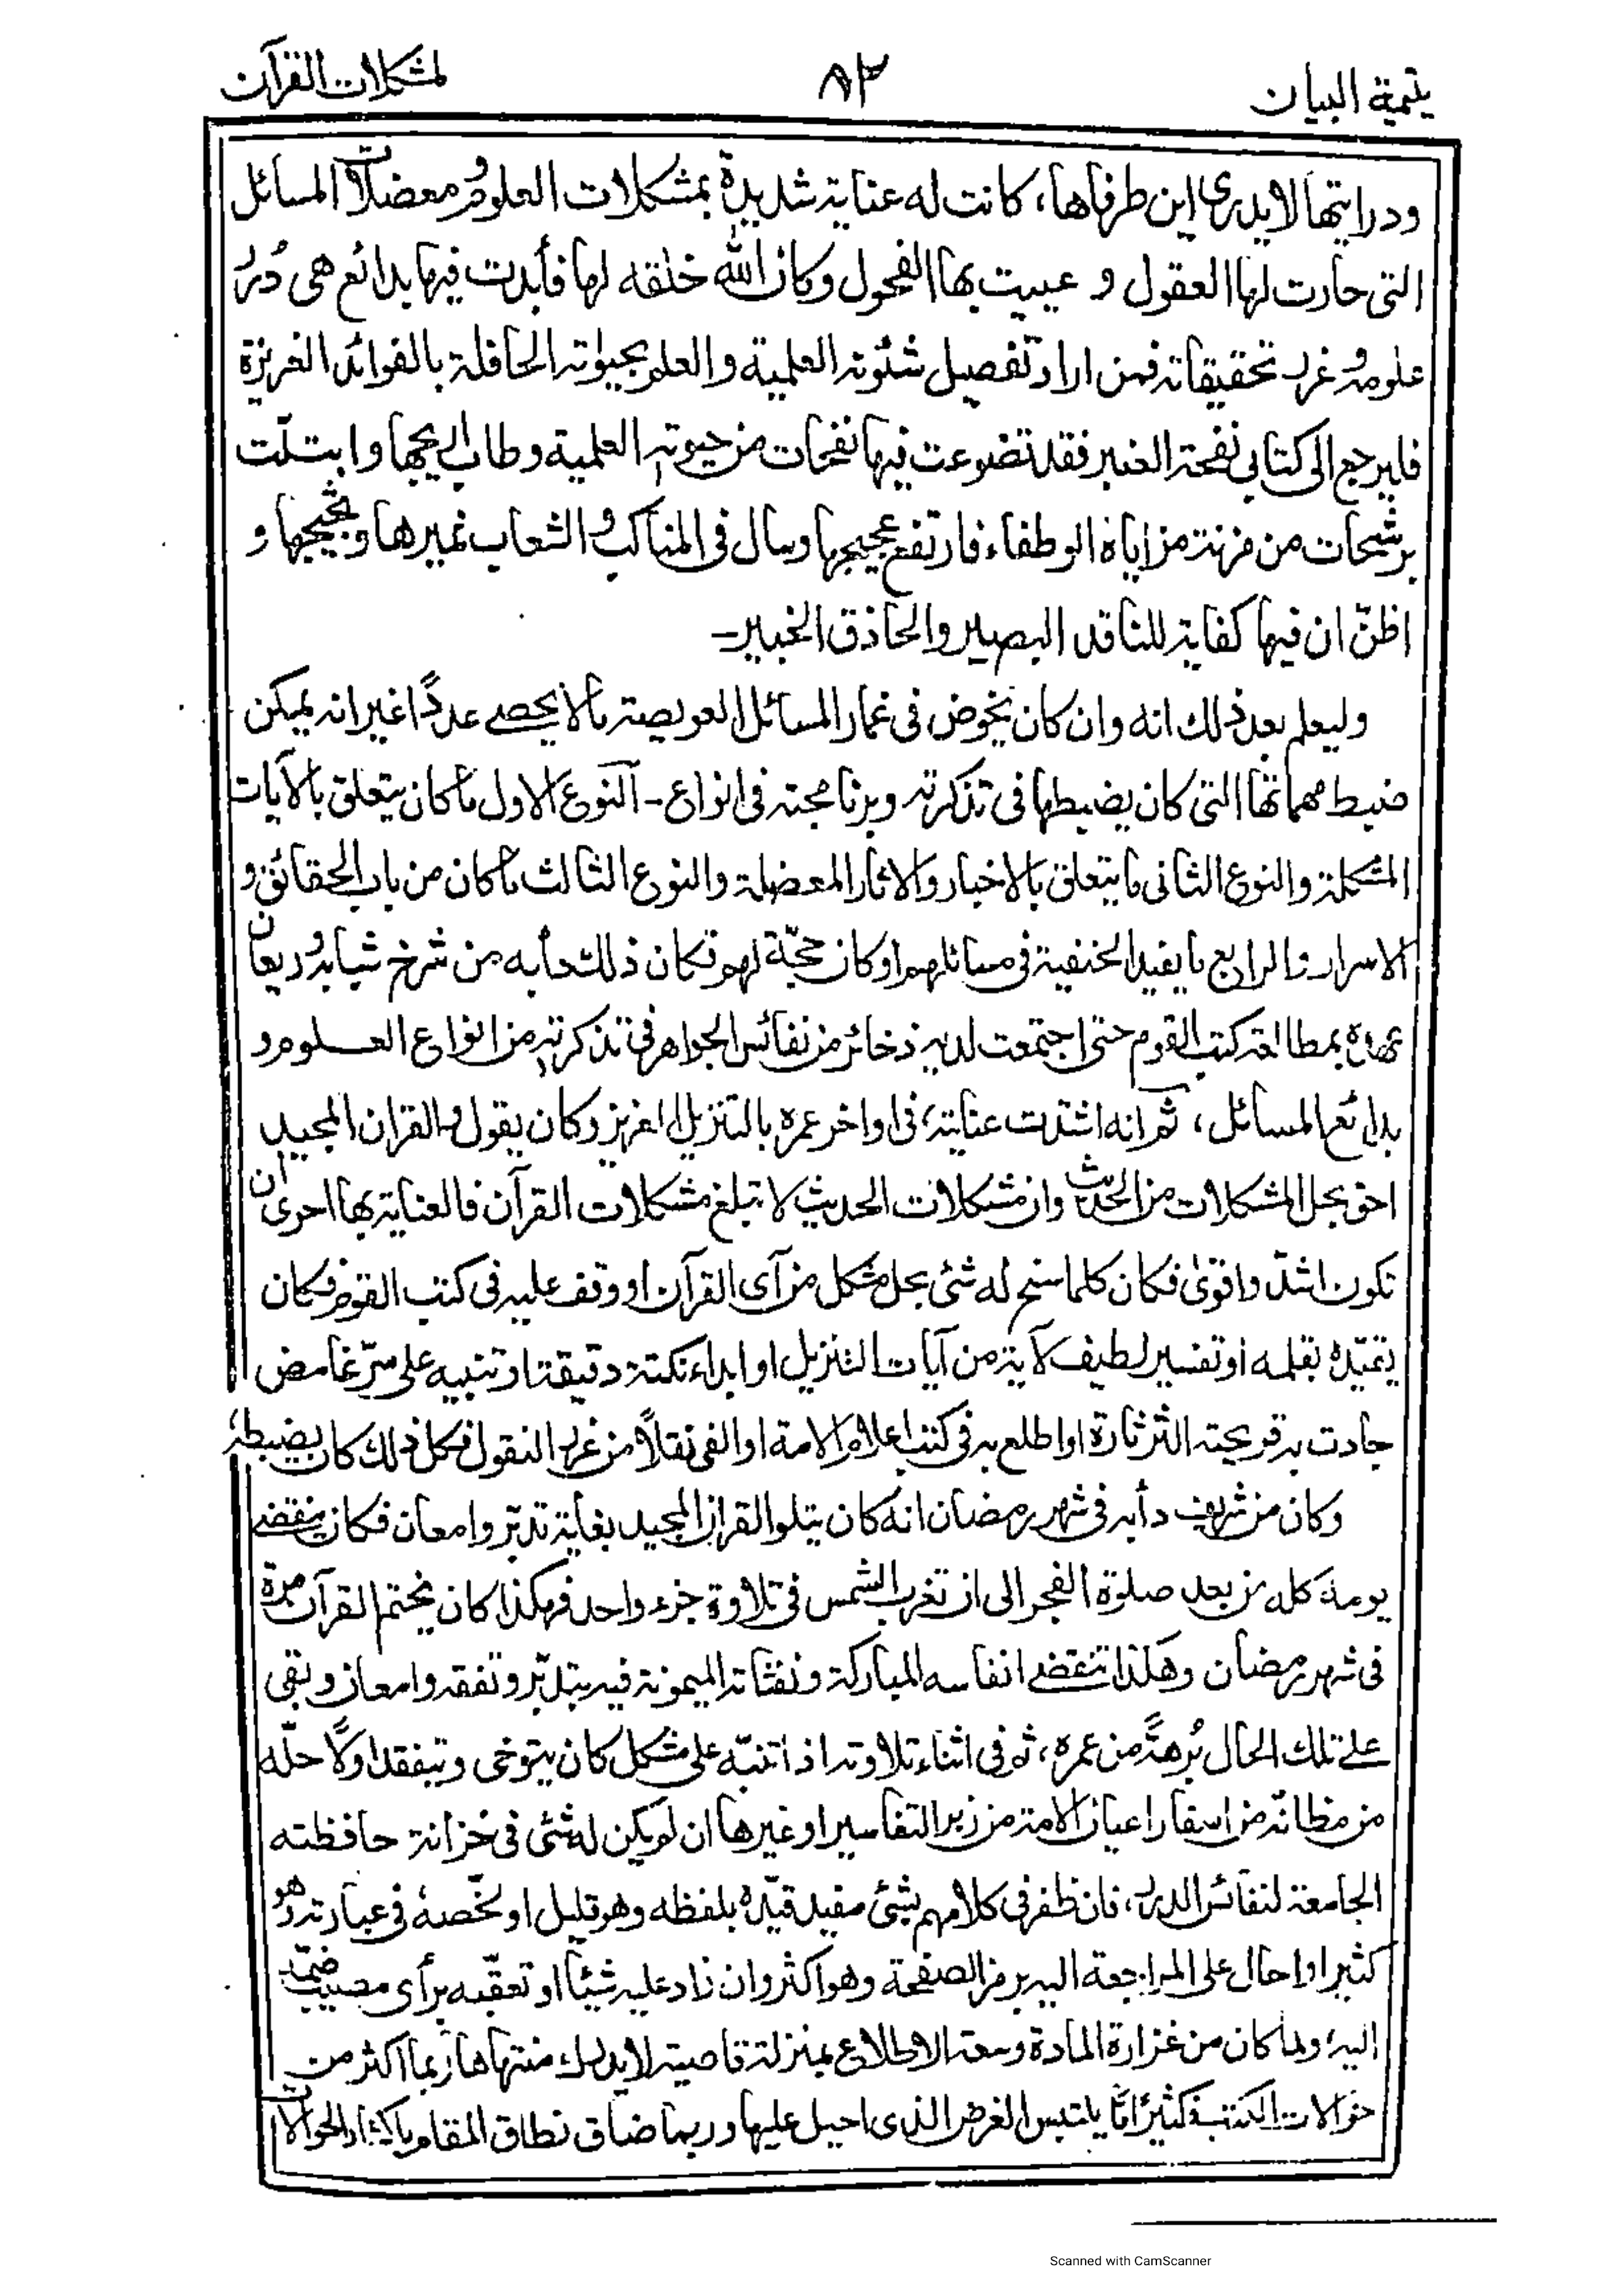 يتيمة البيان
٨٣
لمشكلات القرآن
ودرايتها لا يدرى اين طرفاها، كانت له عناية شديدة بمشكلات العلوم ومعضلات المسائل
التى حارت لها العقول و عييت بها الفحول وكان الله خلقه لها فأبدت فيها بدائع هى دُرر
علومه وغرر تحقيقاته فمن اراد تفصيل شئونه العلمية والعلم بحيوٰته الحافلة بالفوائد الغزيزة
فليرجع الى كتابى نفحة العنبر فقد تضوعت فيها نفحات من حيوته العلمية وطاب اريجها وابتلّت
برشحات من مزنة مزاياه الوطفاء فارتفع عجيجها وسال فى المناكب والشعاب نميرها وثجيجها و
اظنّ ان فيها كفاية للناقد البصير والحاذق الخبير-
وليعلم بعد ذلك انه وان كان يخوض فى غمار المسائل العويصة مالا يحصے عددًا غير انه يمكن
ضبط مهماتها التى كان يضبطها فى تذكرته وبرنامجته فى انواع - آلنوع الاول ما كان يتعلق بالآيات
المشكلة والنوع الثانى ما يتعلق بالاخبار والاثار المعضلة والنوع الثالث ما كان من باب الحقائق و
الاسرار والرابع ما يفيد الحنفية فى مسائلهم اوكان حجّة لهم فكان ذلك دأبه من شرخ شبابه وريعان
نهاه بمطالعة كتب القوم حتى اجتمعت لديه ذخائر من نفائس الجواهر فى تذكرته من انواع العلوم و
بدائع المسائل، ثم انه اشتدت عنايته، فى اواخر عمره بالتنزيل العزيز وكان يقول والقران المجيد
احق بحل المشكلات من الحديث وان مشكلات الحديث لا تبلغ مشكلات القرآن فالعناية بها احرى ان
تكون اشدّ واقوىٰ فكان كلما سنح له شئ بحل مشكل من آى القرآن او وقف عليه فى كتب القوم فكان
يقيّده بقلمه او تفسير لطيف لآية من آيات التنزيل او ابداء نكتة دقيقة او تنبيه على سرّ غامض
جادت به قريحته الثرثارة او اطلع به فى كتب اعلام الامة او الفى نقلاً من غرر النقول فكل ذلك كان يضبطه،
وكان من شريف دأبه فى شهر رمضان انه كان يتلو القران المجيد بغاية تدبّر وامعان فكان ينقضے
يومه كله من بعد صلوة الفجر الى ان تغرب الشمس فى تلاوة جزء واحد فهكذا كان يختم القرآن مرة
فى شهر رمضان وهكذا تنقضے انفاسه المباركة ونفثاته الميمونة فيه بتدبّر وتفقه وامعان وبقى
علے تلك الحال بُرهةً من عمره، ثم فى اثناء تلاوته اذا تنبّه على مشكل كان يتوخى ويتفقد اولًا حلّه
من مظانّه من اسفار اعيان الامة من زبر التفاسير او غيرها ان لم يكن له شئ فى خزانة حافظته
الجامعة لنفائس الدرر، فان ظفر فى كلامهم بشئ مفيد قيّده بلفظه وهو قليل او لخّصه فى عبارته وهو
كثير او احال على المراجعة اليه برمز الصفحة وهو اكثر وان زاد عليه شيئًا او تعقّبه برأى مصيب ضمّه
اليه، ولما كان من غزارة المادة وسعة الاطلاع بمنزلة قاصية لا يدرك منتهاها ربما اكثر من
حوالات الكتب فكثيرًا مّا يلتبس الغرض الذى احيل عليها وربما ضاق نطاق المقام باكثار الحوالات
Scanned with CamScanner